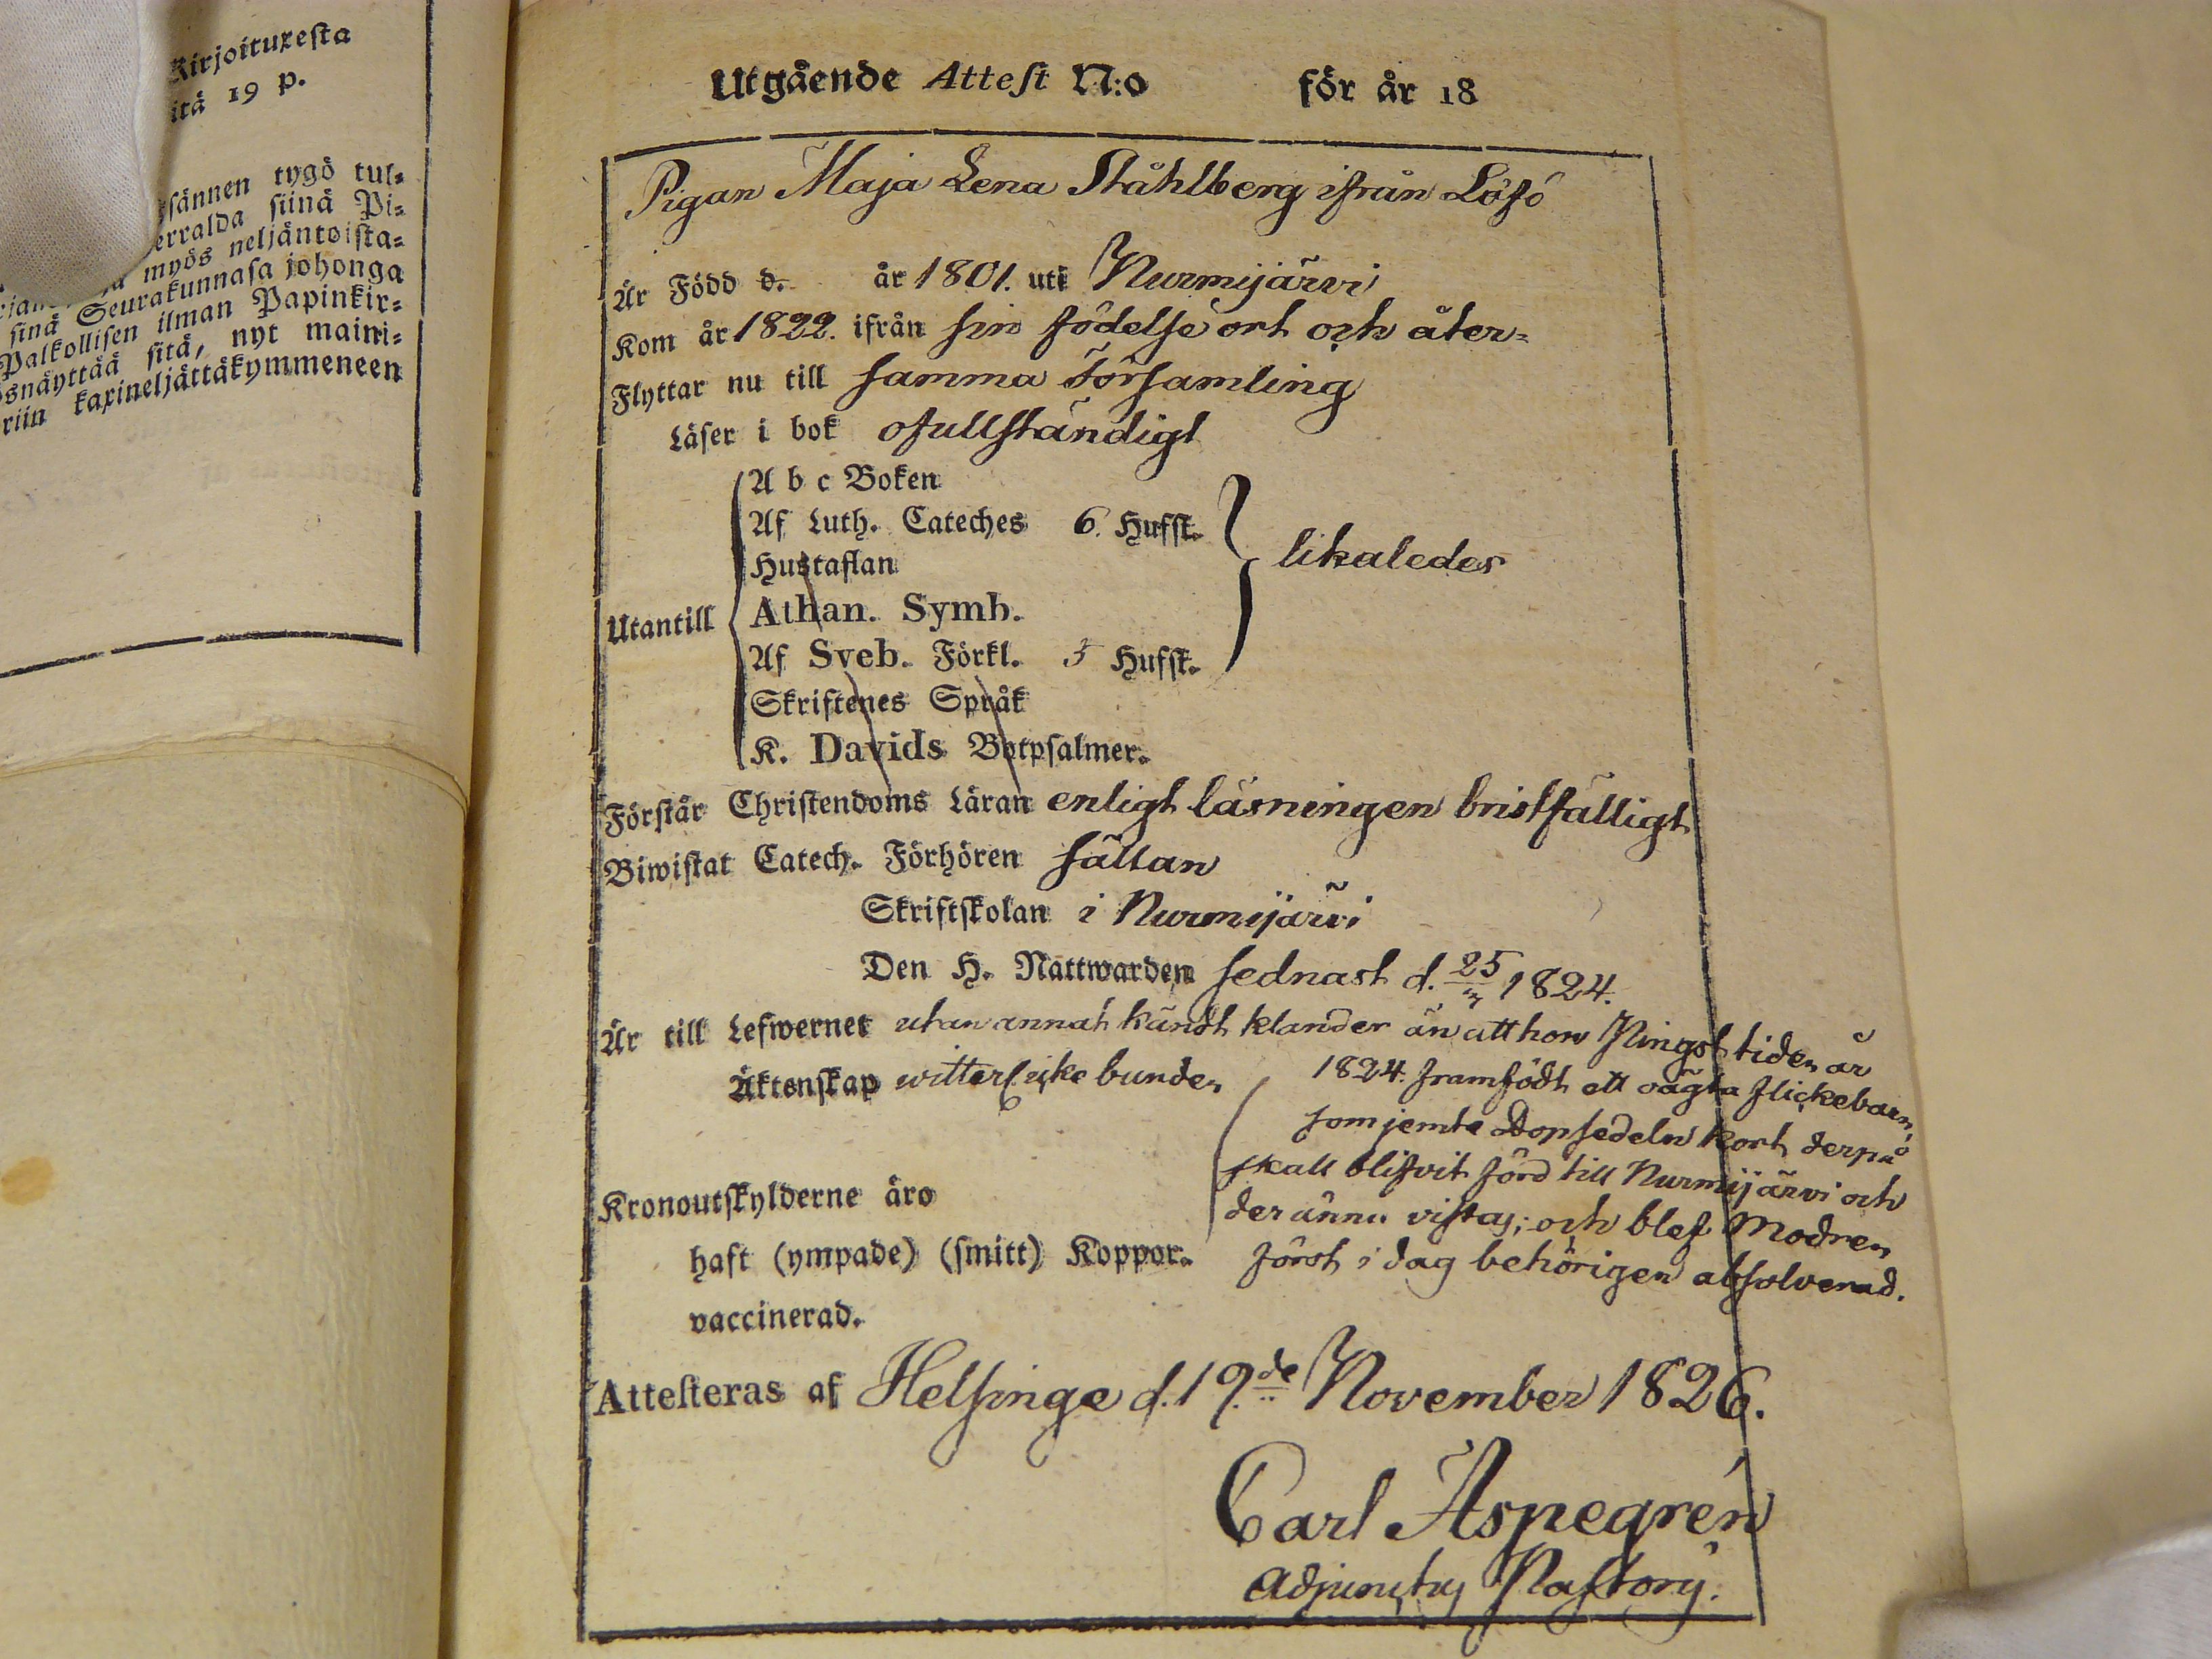 Kirjoituxesta
itä 19 p.
sännen tygö tul⸗
erralda siinä Pi⸗
myös neljäntoista⸗
sinä Seurakunnasa johonga
Palkollisen ilman Papinkir⸗
snäyttää sitä, nyt maini⸗
riin kaxineljättäkymmeneen
Utgående Attest N:o för år 18
Pigan Maja Lena Ståhlberg ifrån Löfö
Är Född d. år 1801. uti Nurmijärvi
Kom år 1822. ifrån sin födelse ort och åter⸗
Flyttar nu till samma Församling
Läser i bok ofullständigt
Utantill
A b c Boken
Af Luth. Cateches 6. Hufst.
Hustaflan
likaledes
Athan. Symb.
Af Sveb. Förkl. 5 Hufst.
Skriftenes Språk
K. Davids Botpsalmer.
Förstår Christendoms Läran enligt läsningen bristfälligt
Biwistat Catech. Förhören sällan
Skriftskolan i Nurmijärvi
Den H. Nattwarden sednast d. 25 1824.
Är till Lefwernet utan annat kändt klander än att hon Pingst tiden år
1824. framfödt ett oägta flickebarn,
Äktenskap witterl. icke bunden
som jemte Dopsedeln kort derpå
skall blifvit förd till Nurmijärvi och
Kronoutskylderne äro
der ännu vistas; och blef Modren
haft (ympade) (smitt) Koppor.
först i dag behörigen absolverad.
vaccinerad.
Attesteras af Helsinge d. 19.de November 1826.
Carl Aspegrén
Adjunctus Pastoris.